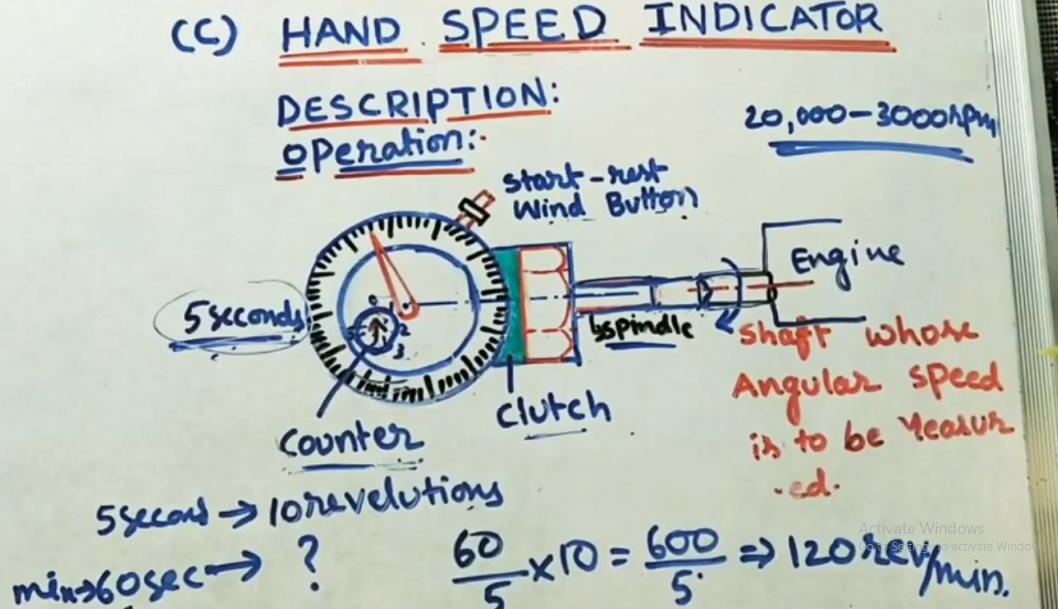 (C) HAND SPEED INDICATOR
DESCRIPTION:
Operation:-
20,000-3000rpm
start-rest
Wind Button
Engine
5 seconds
0
1
2
3
spindle
shaft whose
Angular speed
is to be Measur
ed.
clutch
counter
5 second → 10 revelutions
min→60sec → ?
60/5 × 10 = 600/5 ⇒ 120 rev/min.
Activate Windows